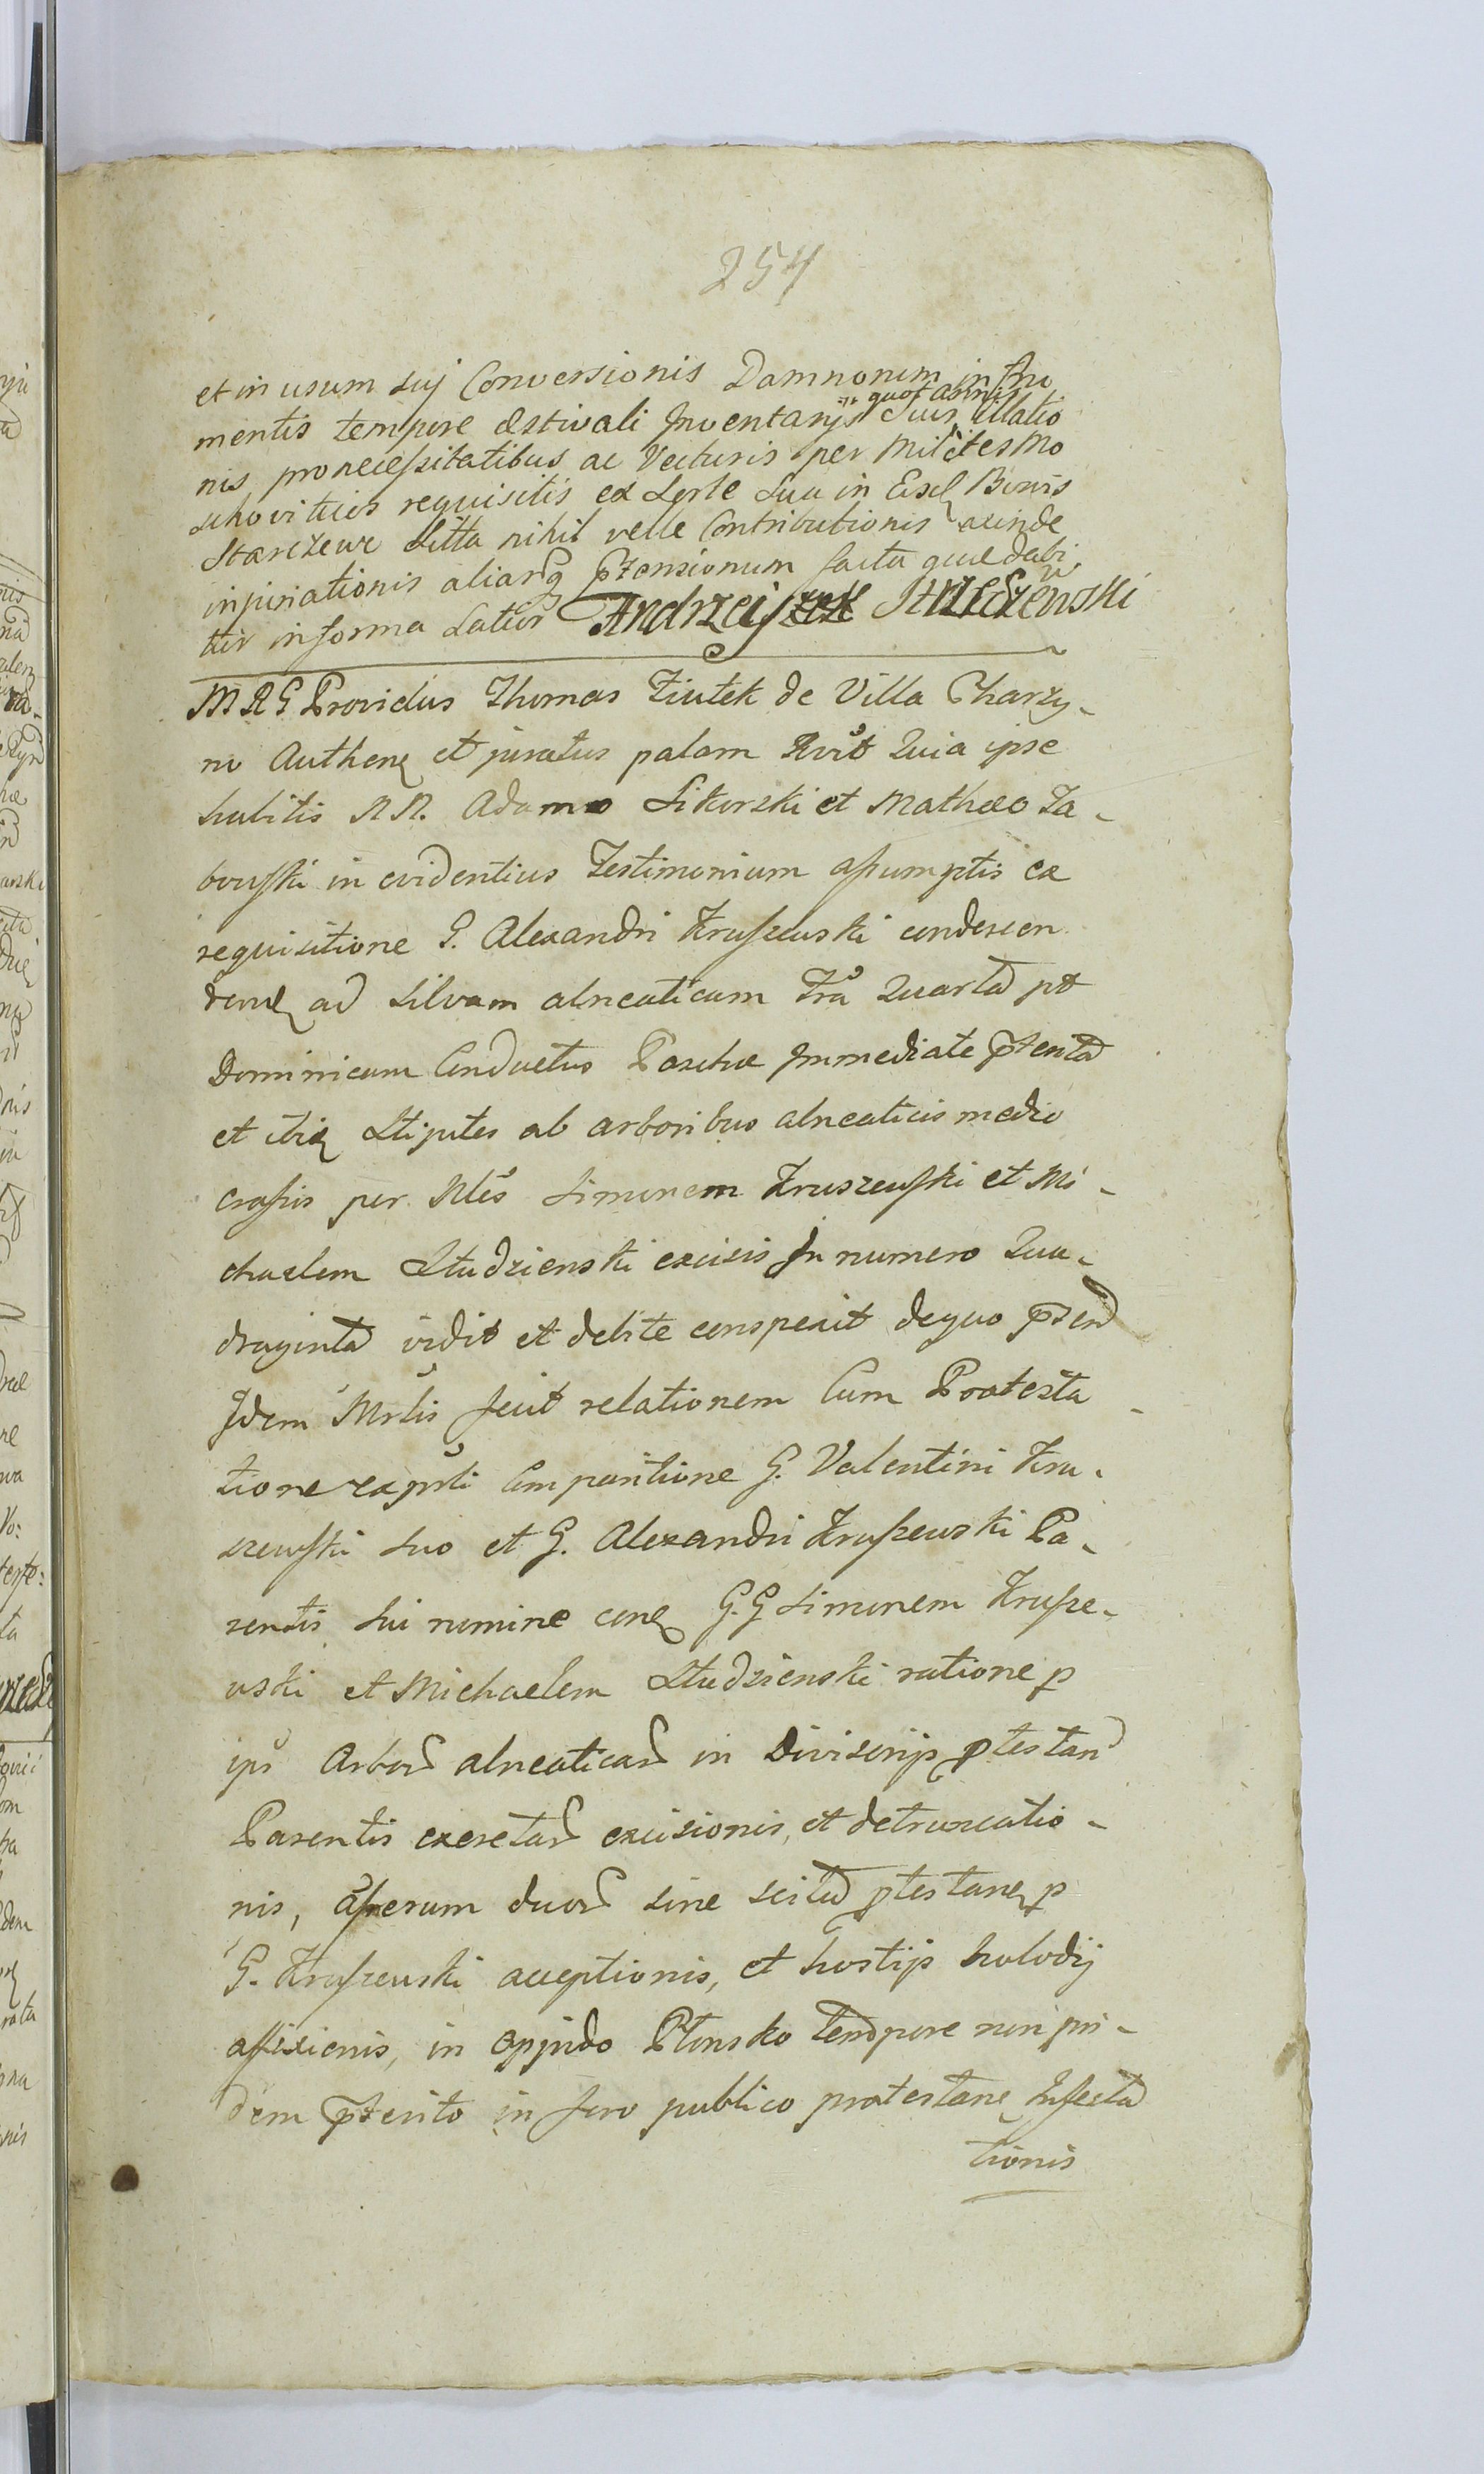 254
et in usum suj Conversionis Damnorum in fru
mentis tempore æstivali Inventarijs quot annis Suis, illatio
nis pro necessitatibus ac Vecturis per Milites Mo
schoviticos requisitis ex Sorte Sua in Eisd Bonis
Starczewe Sitta nihil velle Contributionis exinde
injuriationis aliarq ptensionum facta quæ dabi
tur in forma Latior Andrzej Strzeszewski
MRG Providus Thomas Ziutek de Villa Charzy-
no Authen et juratus palam Rvit Quia ipse
habitis NN. Adamo Sikorski et Mathæo Za-
borusski in evidentius Testimonium assumptis ex
requisitione G. Alexandri Krussewski condescen
dens ad silvam alneaticam Fra Quarta pt
Dominicam Conductus Paschæ Immediate pterita
et ibiq Stipites ab arboribus alneaticis medio
crassis per Nles Simonem Kruszewski et Mi-
chaelem Studzienski excisis In numero Qua-
draginta vidit et debite conspexit de quo psen
Idem Mrlis fecit relationem Cum Protesta-
tione ex psti Comparitione G. Valentini Kru-
szewski suo et G. Alexandri Kruszewski Pa-
rentis sui nomine con G.G Simonem Krusze-
wski et Michaelem Studzienski ratione p
ips Arbor alneaticar in Divisorijs ptestan
Parentis exeretar excisionis, et detruncatio-
nis, Asserum duor sine scitu ptestan p
G. Kruszewski acceptionis, et hostijs holodij
affixionis, in Oppido Plonsko tempore non pri-
dem pterito in foro publico protestan Infecta
tionis